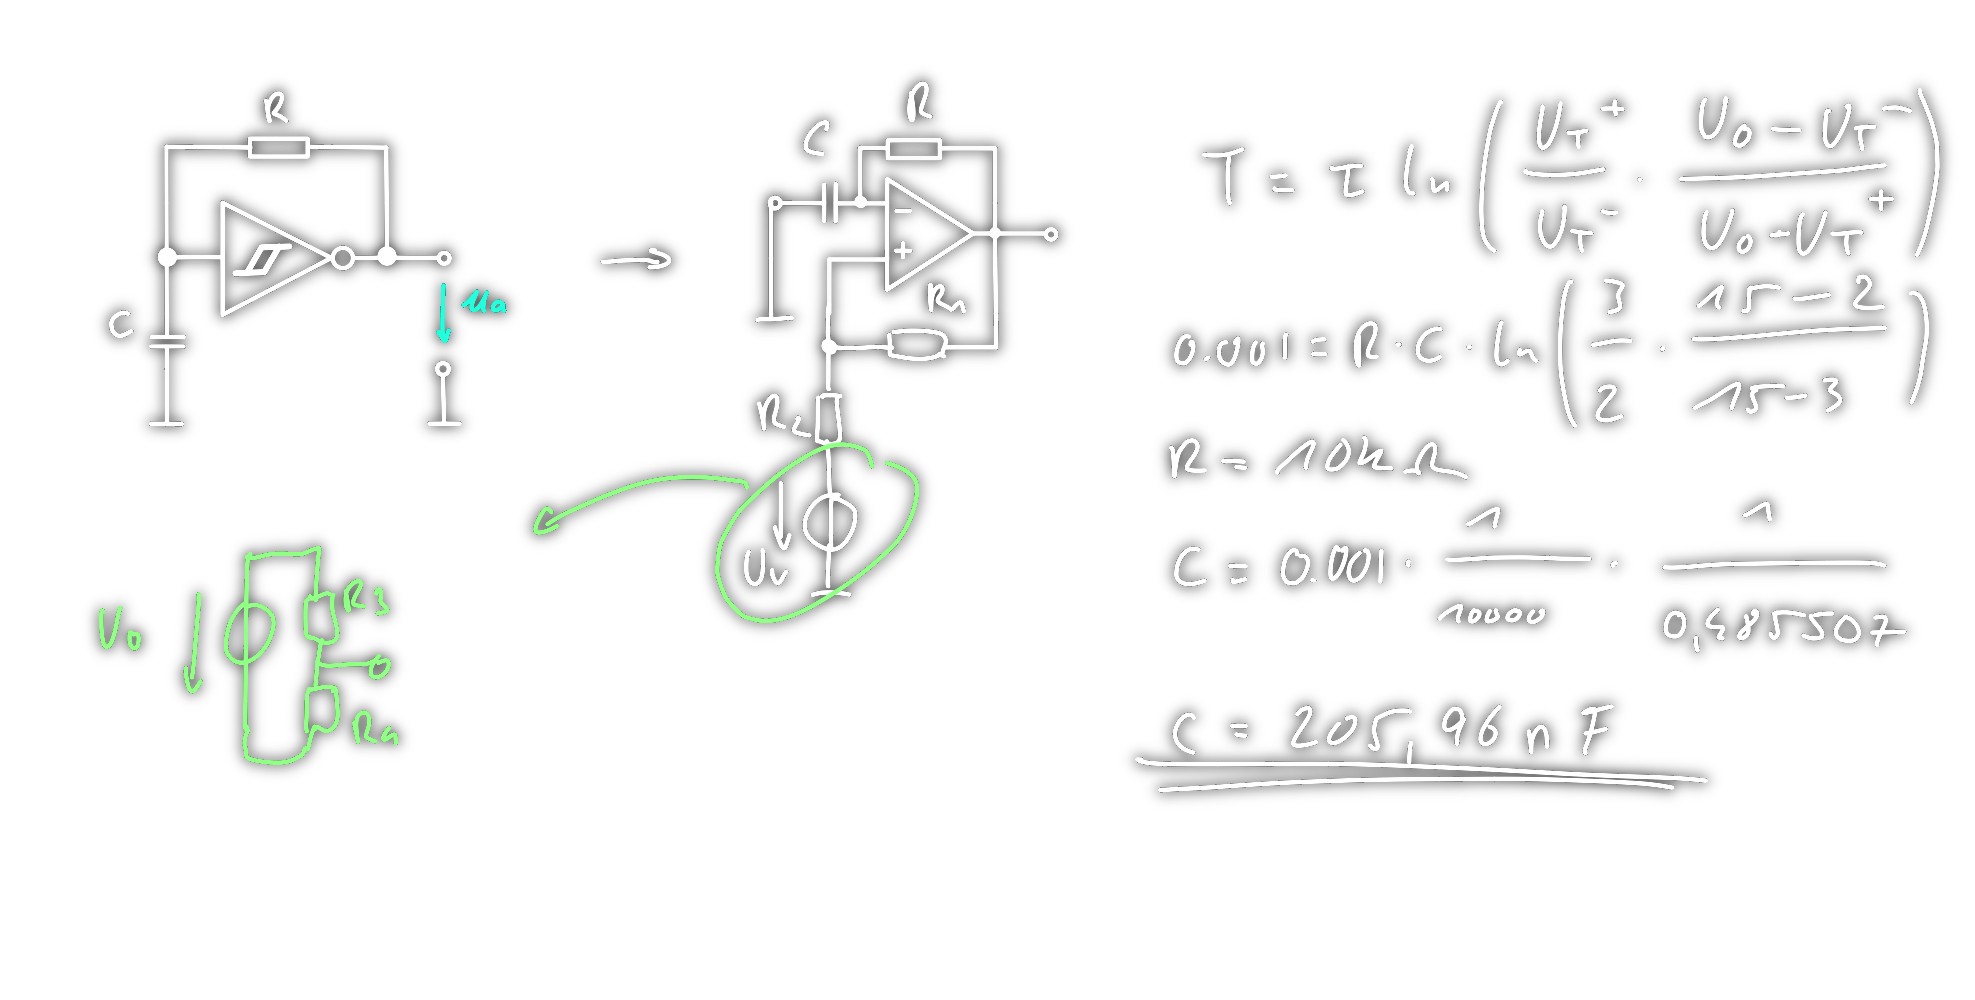 R
C
ua
C
R
-
+
Rn
R2
Uv
U0
R3
R4
T = τ ln ( UT+ / UT- · U0 - UT- / U0 - UT+ )
0.001 = R · C · ln ( 3 / 2 · 15 - 2 / 15 - 3 )
R = 10kΩ
C = 0.001 · 1 / 10000 · 1 / 0,485507
C = 205,96 nF